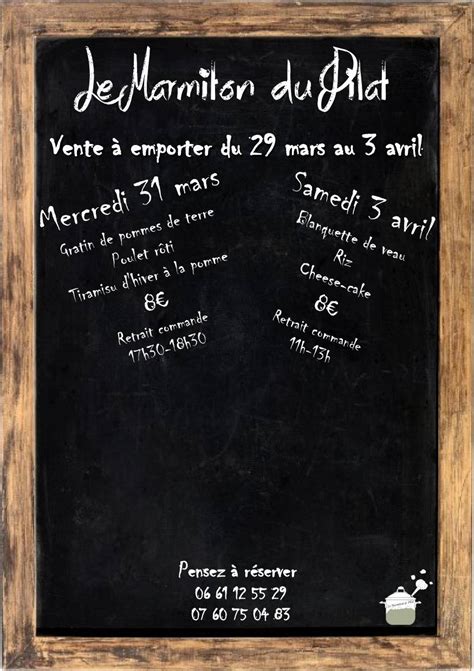 Le Marmiton du Pilat
Vente à emporter du 29 mars au 3 avril
Mercredi 31 mars
Gratin de pommes de terre
Poulet rôti
Tiramisu d'hiver à la pomme
8€
Retrait commande
17h30-18h30
Samedi 3 avril
Blanquette de veau
Riz
Cheese-cake
8€
Retrait commande
11h-13h
Pensez à réserver
06 61 12 55 29
07 60 75 04 83